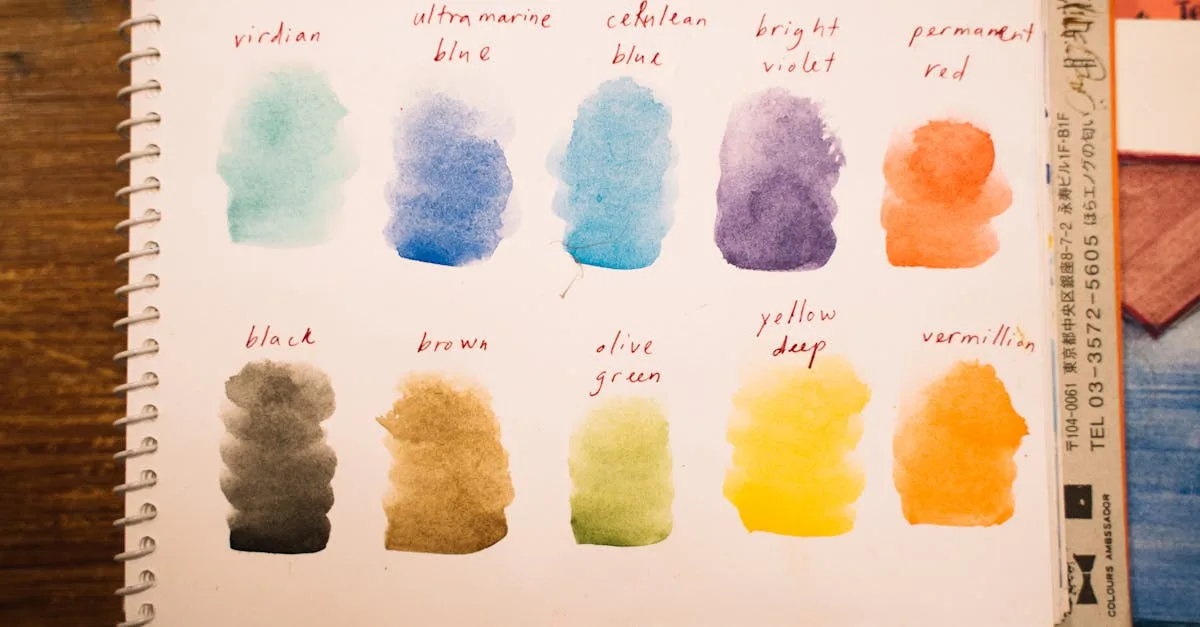 virdian
ultramarine
blue
cerulean
blue
bright
violet
permanent
red
black
brown
olive
green
yellow
deep
vermillion
〒104-0061 東京都中央区銀座8-7-2 永寿ビル1F·B1F
TEL 03-3572-5605 ほらエノグの匂い
COLOURS AMBSSADOR